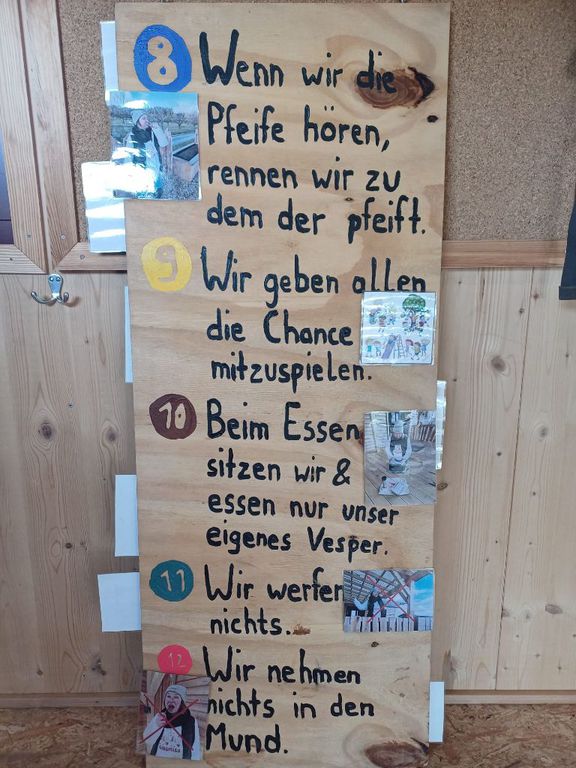 8 Wenn wir die
Pfeife hören,
rennen wir zu
dem der pfeift.
9 Wir geben allen
die Chance
mitzuspielen.
10 Beim Essen
sitzen wir &
essen nur unser
eigenes Vesper.
11 Wir werfen
nichts.
12 Wir nehmen
nichts in den
Mund.